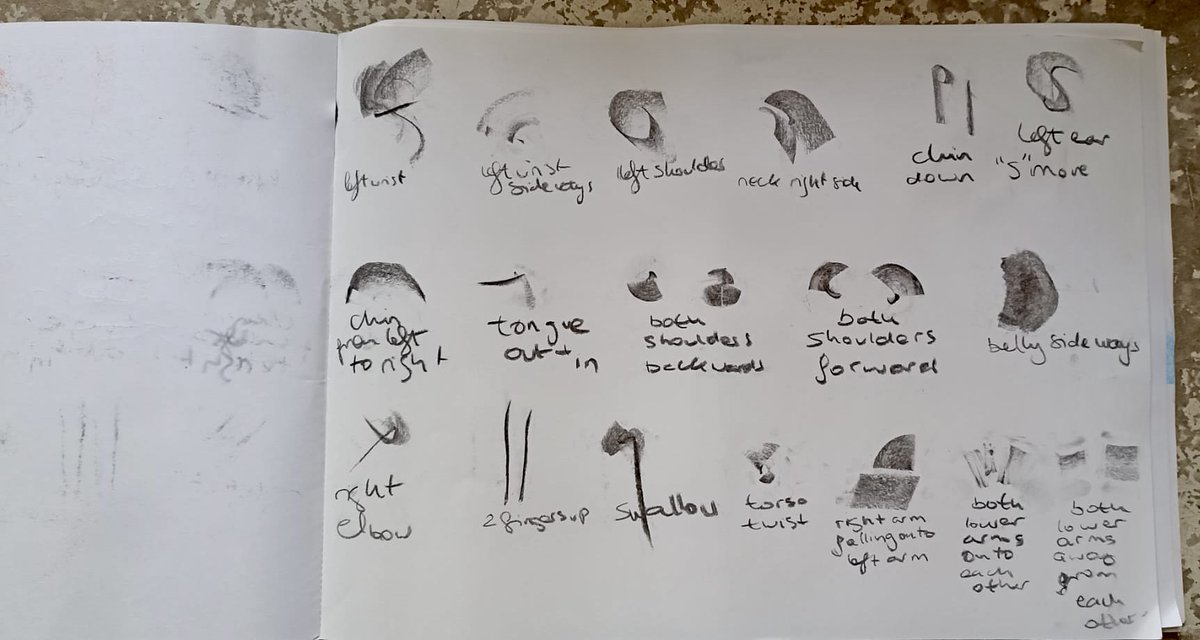 left wrist
left wrist
sideways
left shoulder
neck right side
chin
down
left ear
"S" move
chin
from left
to right
tongue
out + in
both
shoulders
backwards
both
shoulders
forward
belly sideways
right
elbow
2 fingers up
swallow
torso
twist
right arm
falling onto
left arm
both
lower
arms
onto
each
other
both
lower
arms
away
from
each
other